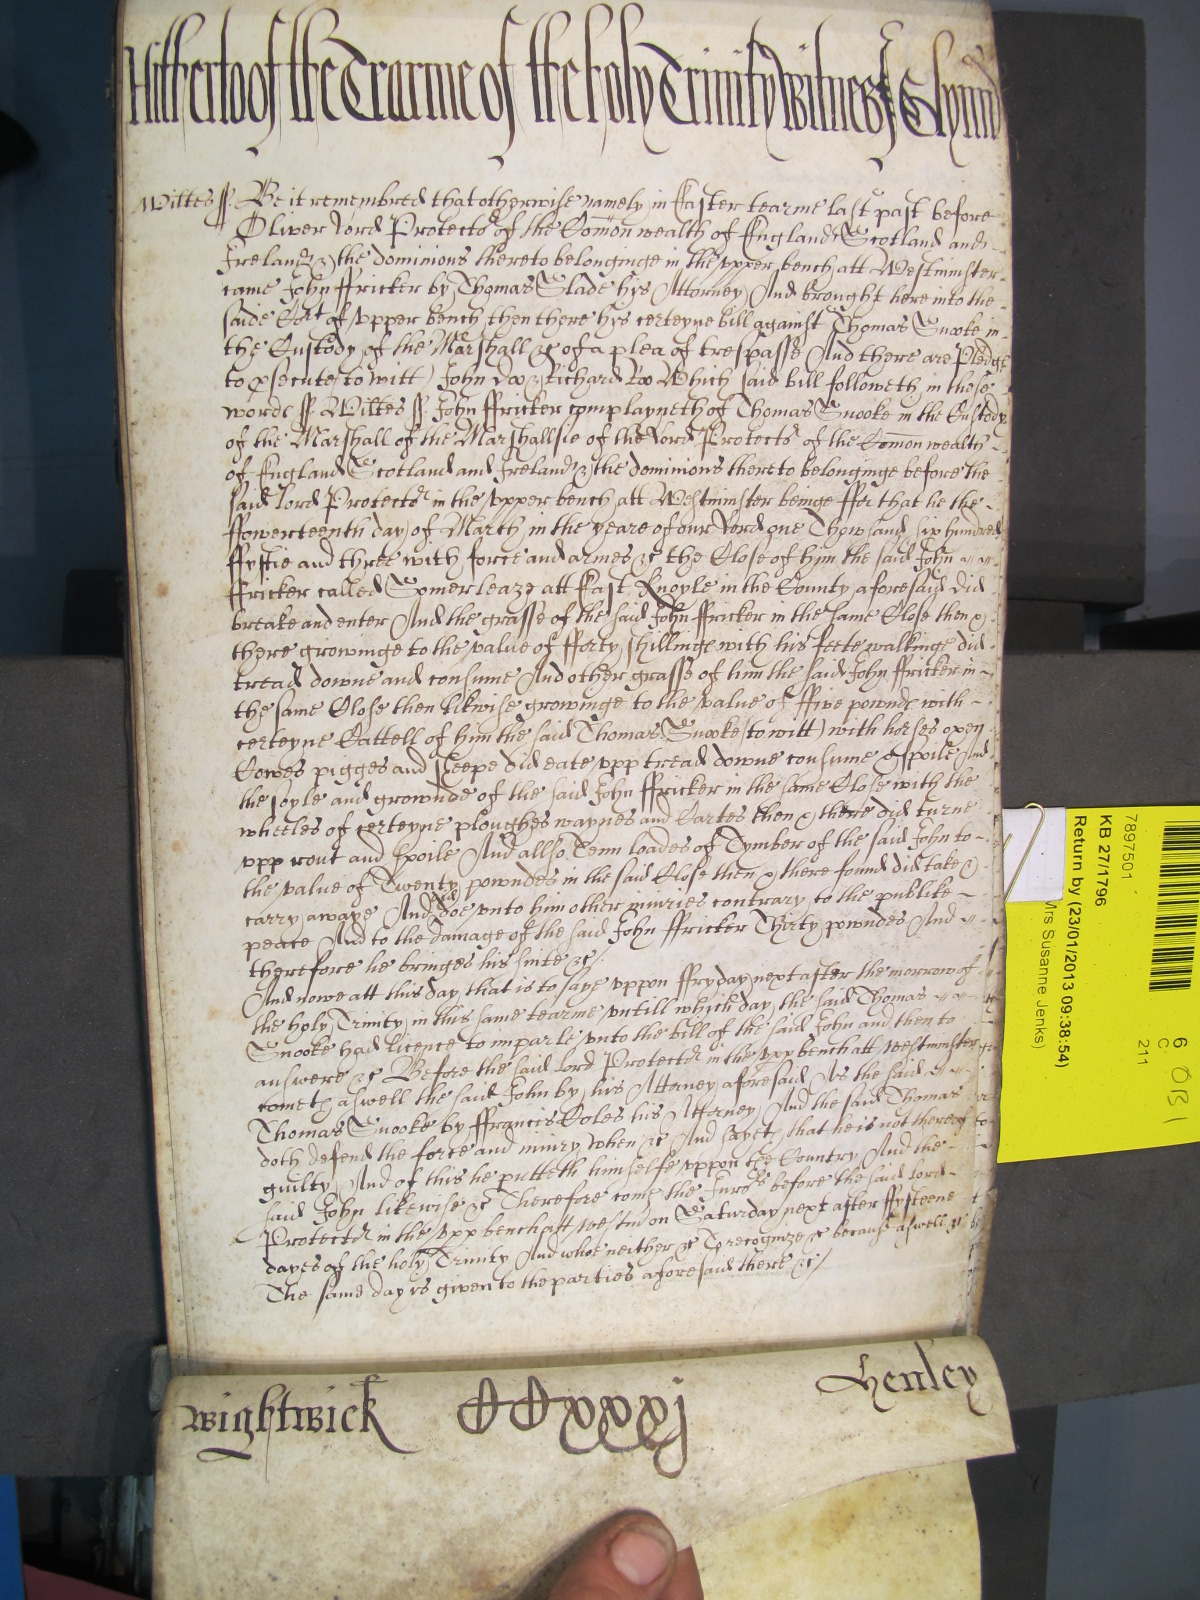 Hitherto of the Tearme of the holy Trinity Witnes Glynn
Wiltes ss. Be it remembred that otherwise namely in Easter tearme last past before
Oliver Lord Protector of the Comon wealth of England Scotland and
Ireland & the dominions thereto belonginge in the upper bench att Westminster
came John Fricker by Thomas Slade hys Attorney And brought here into the
saide Court of upper bench then there hys certeyne bill against Thomas Snooke in
the Custody of the Marshall &c of a plea of trespasse And there are Pledges
to psecute to witt John Doo & Richard Roo Which said bill followeth in these
words ss. Wiltes ss. John Fricker complayneth of Thomas Snooke in the Custody
of the Marshall of the Marshallsie of the Lord Protector of the Comon wealth
of England Scotland and Ireland & the dominions thereto belonginge before the
said Lord Protector in the upper bench att Westminster beinge ffor that he the
ffowerteenth day of March in the yeare of our Lord one Thowsand six hundred
ffyftie and three with force and armes &c the Close of him the said John
Fricker called Somerleaze att East Knoyle in the County aforesaid did
breake and enter And the grasse of the said John Fricker in the same Close then &
there growinge to the value of fforty shillings with his feete walkinge did
tread downe and consume And other grasse of him the said John Fricker in
the same Close then likwise growinge to the value of ffive pownds with
certeyne Cattell of him the said Thomas Snooke (to witt) with horses oxen
Cowes pigges and sheepe did eate upp tread downe consume & spoile And
the soyle and grownde of the said John Fricker in the same Close with the
wheeles of certeyne ploughes waynes and Cartes then & there did turne
upp rout and spoile And allso Tenn loades of Tymber of the said John to
the value of Twenty powndes in the said Close then & there found did take &
carry awaye And did doe unto him other iniuries contrary to the publike
peace And to the damage of the said John Fricker Thirty powndes And
therefore he bringes his suite &c
And nowe att this day that is to saye uppon ffryday next after the morrow of
the holy Trinity in this same tearme untill which day the said Thomas
Snooke had licence to imparle unto the bill of the said John and then to
answere &c Before the said Lord Protector in the upp bench att Westminster
cometh aswell the said John by his Attorney aforesaid As the said
Thomas Snooke by ffrancis Coles his Attorney And the said Thomas
doth defend the force and iniury when &c And sayeth that he is not thereof
guilty And of this he putteth himselfe uppon the Country And the
said John likewise &c Therefore come the Jurors before the said lord
Protector in the upp bench att Westm on Saturday next after ffyfteene
dayes of the holy Trinity And whoe neither &c To recognize &c because aswell &c
The same day is given to the parties aforesaid there &c
Wightwick CCxxxj Henley
7897501
KB 27/1796
Return by (23/01/2013 09:38:54)
Mrs Susanne Jenks)
6
C
211
OBI